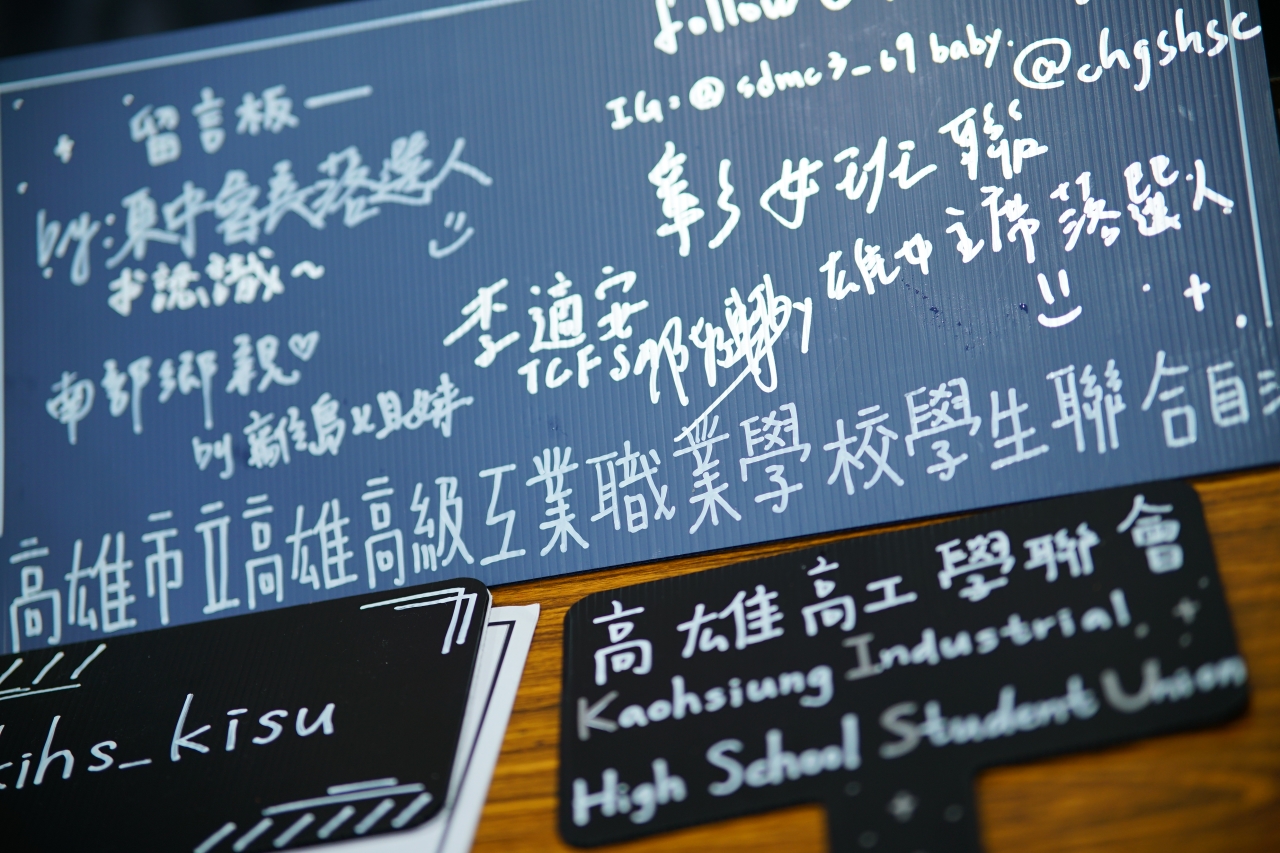 follow
IG:@sdmc3_69baby.
@chgshsc
留言板一
by:東中會長落選人
求認識~
彰女班聯
雄女主席落選人
李適安
TCFS
by
南部鄉親♡
by 離島姐妹
高雄市立高雄高級工業職業學校學生聯合自
kihs_kisu
高雄高工學聯會
Kaohsiung Industrial
High School Student Union